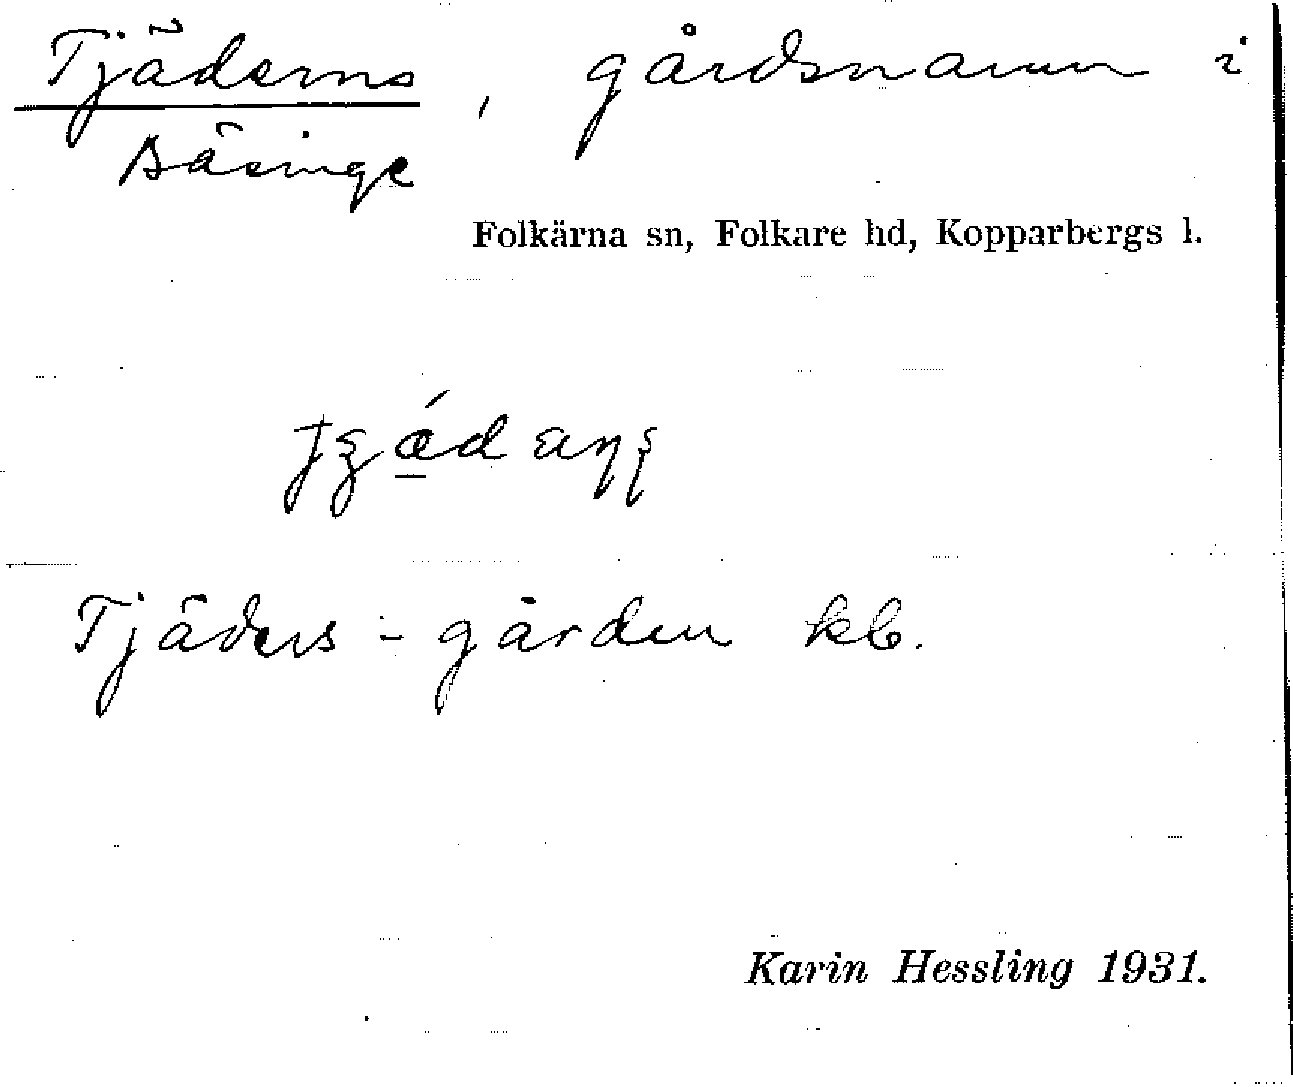 Tjäderns, gårdsnamn i
Bäsinge
Folkärna sn, Folkare hd, Kopparbergs l.
Tjäders-gården kb.
Karin Hessling 1931.